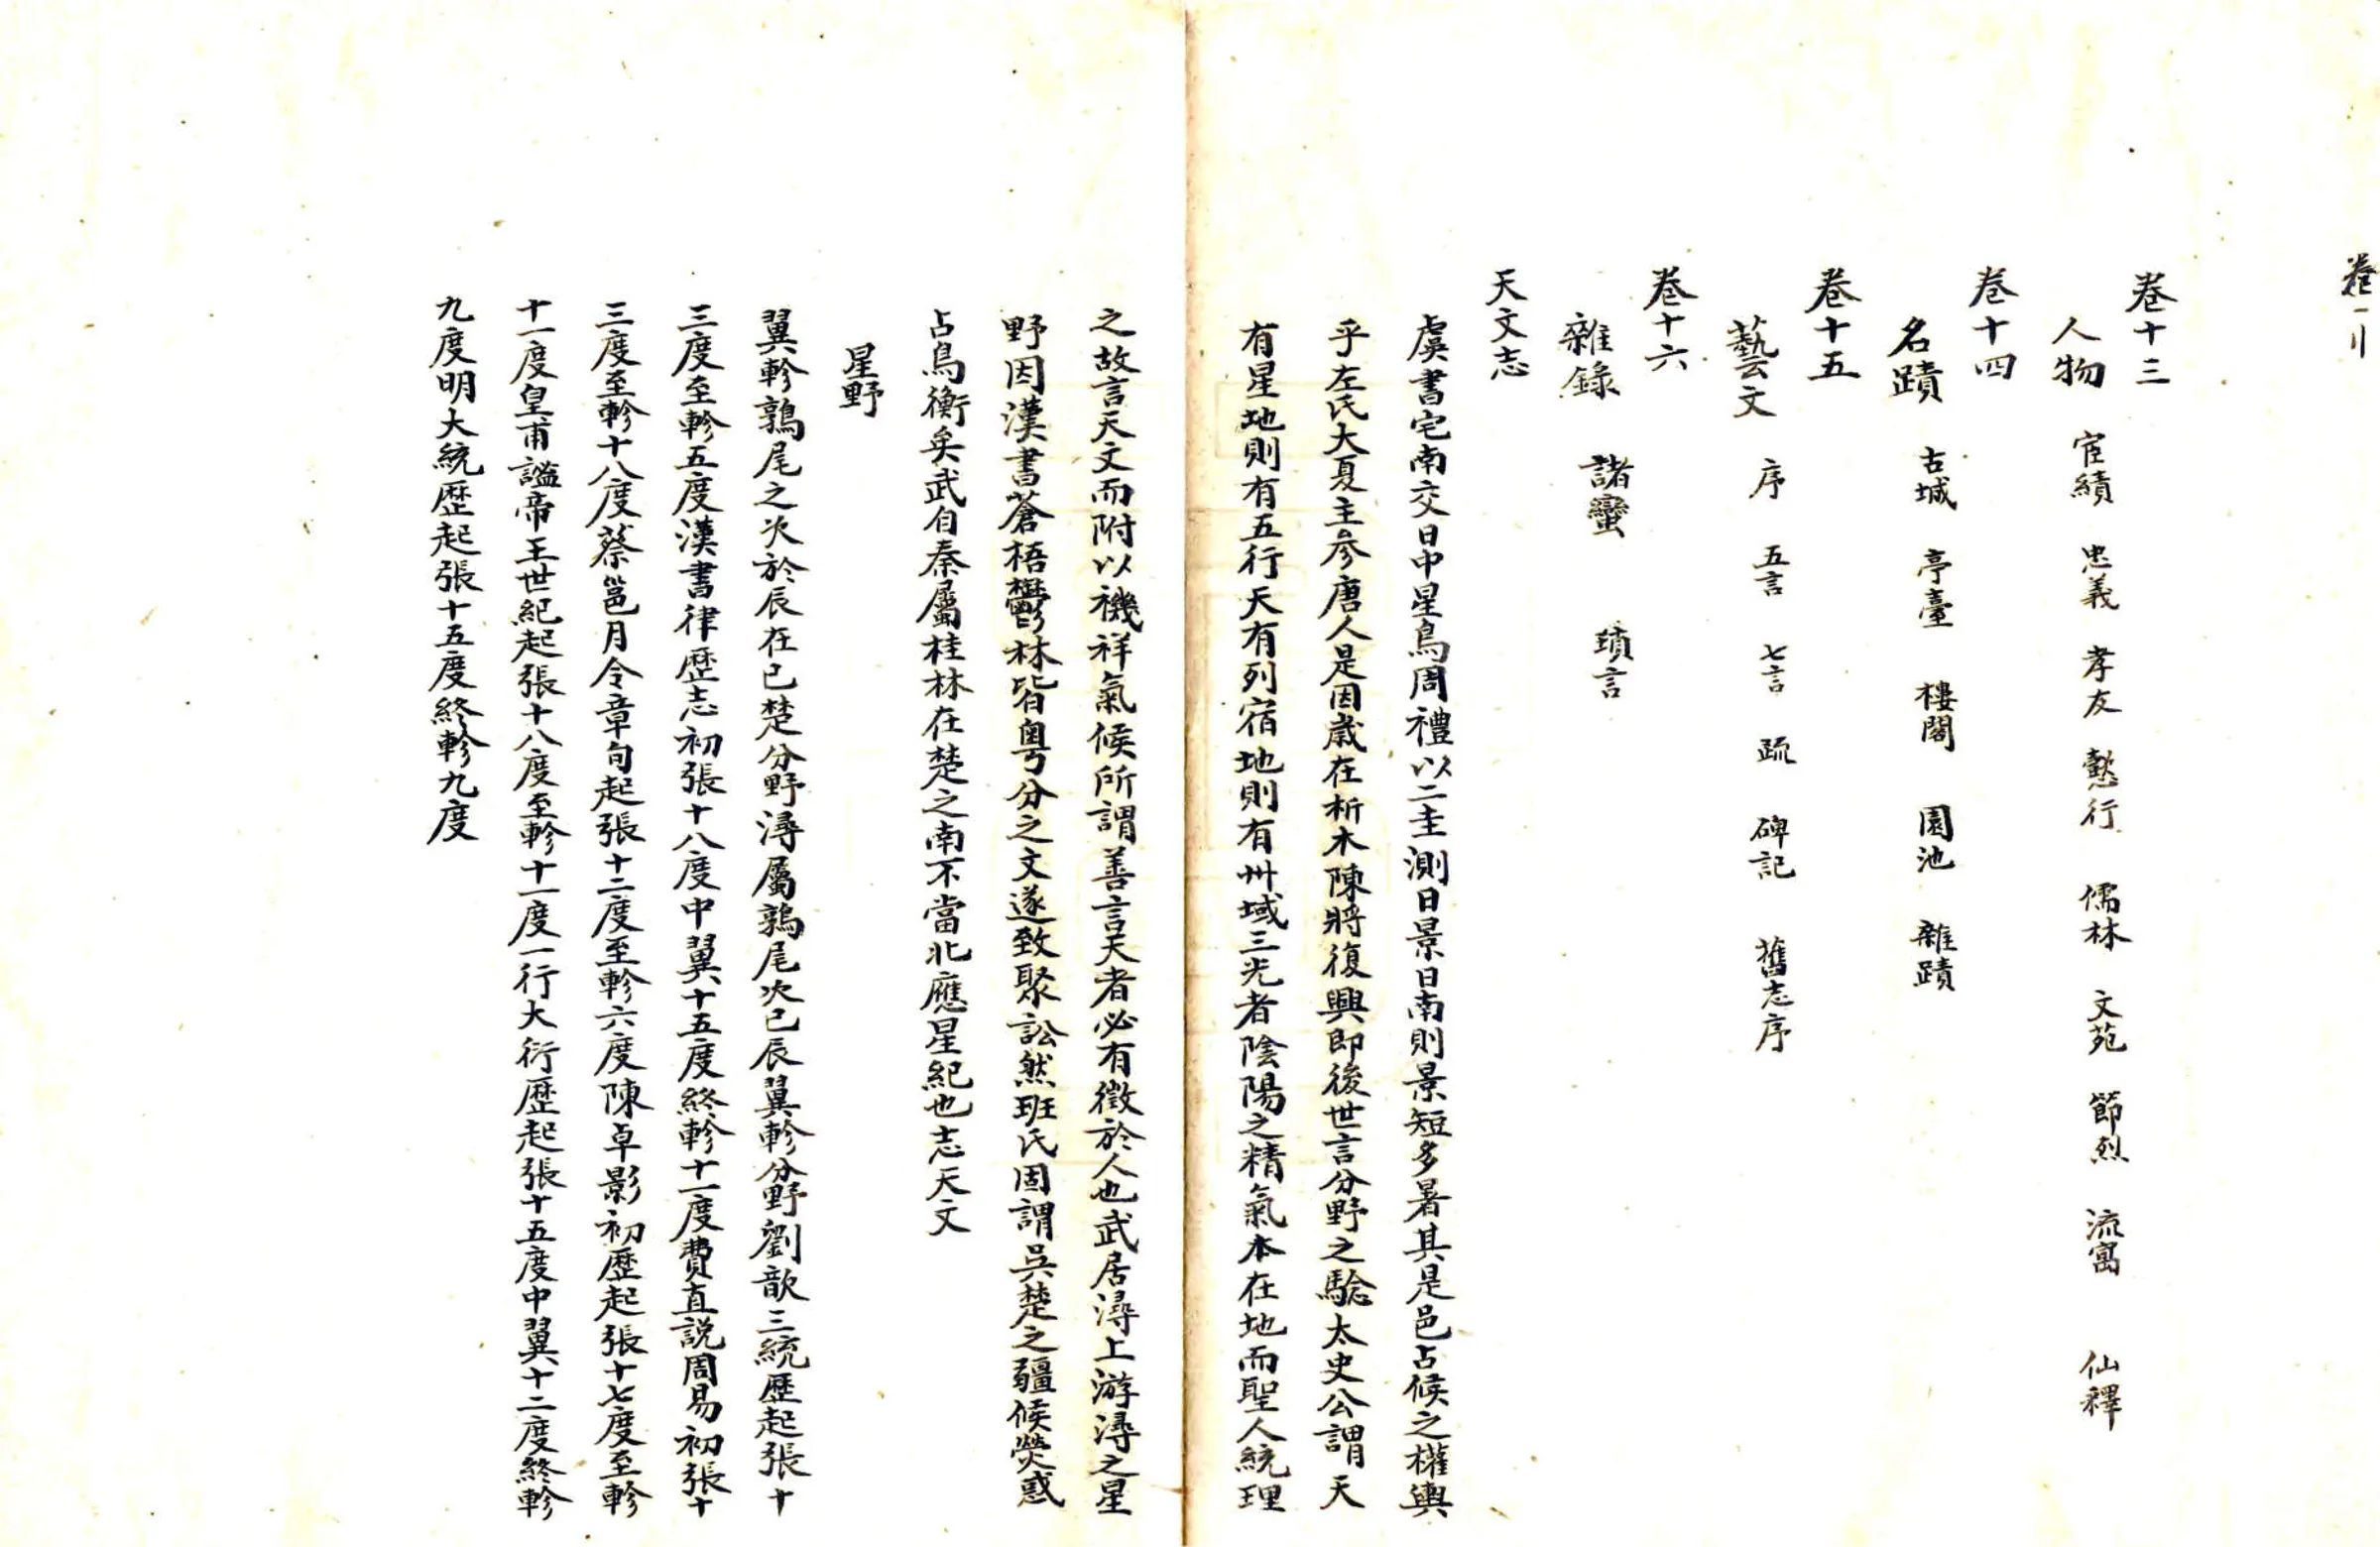 卷十三
人物 宦績 忠義 孝友 懿行 儒林 文苑 節烈 流寓 仙釋
卷十四
名蹟 古城 亭臺 樓閣 園池 雜蹟
卷十五
藝文 序 五言 七言 疏 碑記 舊志序
卷十六
雜錄 諸蠻 瑣言
天文志
虞書宅南交日中星鳥周禮以二圭測日景日南則景短多暑其是邑占候之權輿
乎左氏大夏主參唐人是因歲在析木陳將復興即後世言分野之驗太史公謂天
有星地則有五行天有列宿地則有州域三光者陰陽之精氣本在地而聖人統理
之故言天文而附以禨祥氣候所謂善言天者必有徵於人也武居潯上游潯之星
野因漢書蒼梧鬱林皆粤分之文遂致聚訟然班氏固謂吳楚之疆候熒惑
占鳥衡矣武自秦屬桂林在楚之南不當北應星紀也志天文
星野
翼軫鶉尾之次於辰在巳楚分野潯屬鶉尾次巳辰翼軫分野劉歆三統歷起張十
三度至軫五度漢書律歷志初張十八度中翼十五度終軫十一度費直説周易初張十
三度至軫十八度蔡邕月令章句起張十二度至軫六度陳卓影初歷起張十七度至軫
十一度皇甫謐帝王世紀起張十八度至軫十一度一行大衍歷起張十五度中翼十二度終軫
九度明大統歷起張十五度終軫九度